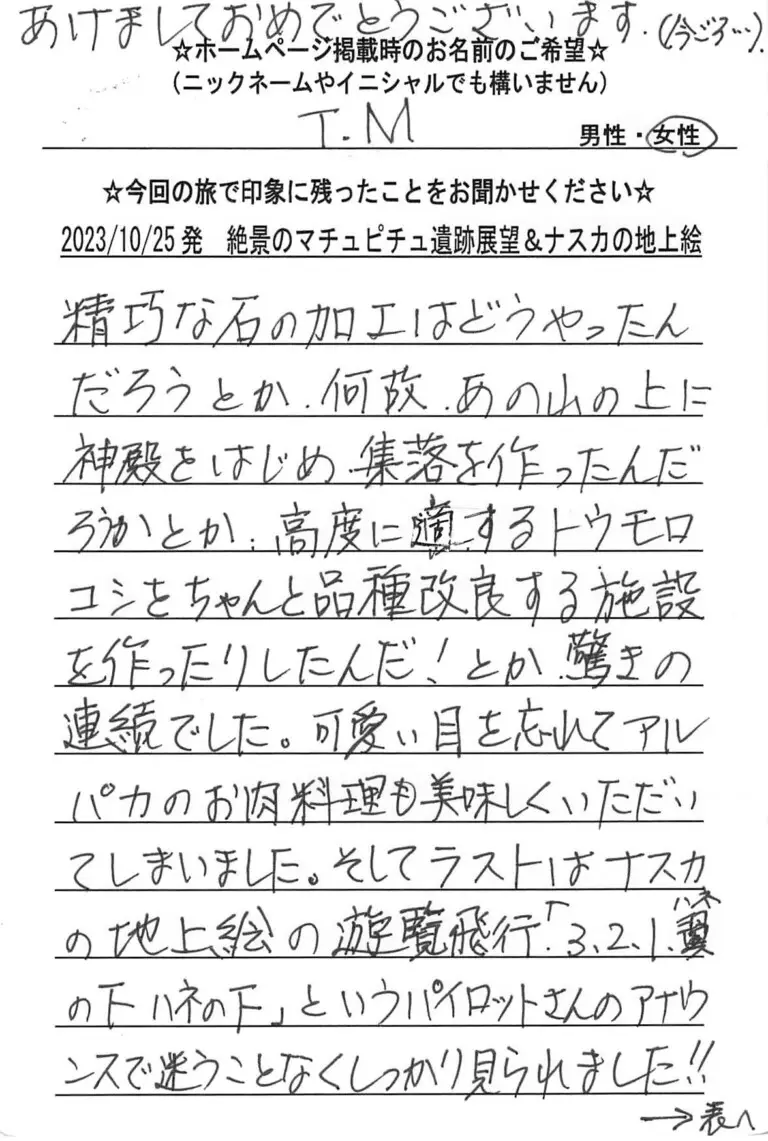 あけましておめでとうございます.(今ごろ…).
☆ホームページ掲載時のお名前のご希望☆
(ニックネームやイニシャルでも構いません)
T.M
男性・女性
☆今回の旅で印象に残ったことをお聞かせください☆
2023/10/25発 絶景のマチュピチュ遺跡展望&ナスカの地上絵
精巧な石の加工はどうやったん
だろうとか、何故、あの山の上に
神殿をはじめ、集落を作ったんだ
ろうかとか、高度に適するトウモロ
コシをちゃんと品種改良する施設
を作ったりしたんだ!とか、驚きの
連続でした。可愛い目を忘れてアル
パカのお肉料理も美味しくいただい
てしまいました。そしてラストはナスカ
ハネ
の地上絵の遊覧飛行.「3、2、1、翼
の下ハネの下」というパイロットさんのアナウ
ンスで迷うことなくしっかり見られました!!
→表へ